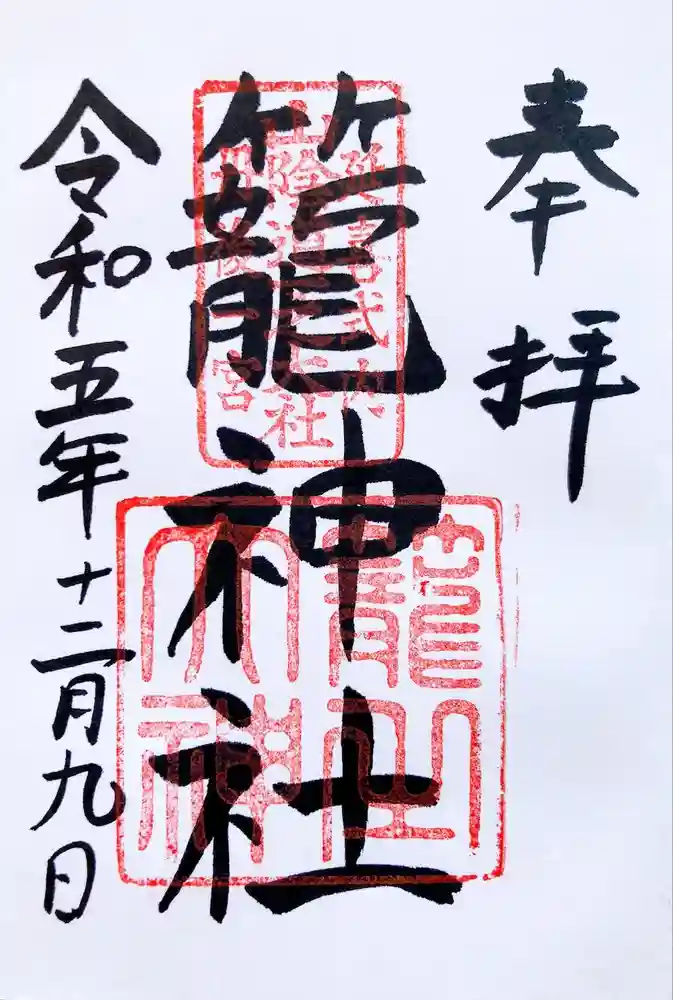 奉拝
延喜式内
山陰道之大社
丹後一宮
籠神社
令和五年十二月九日